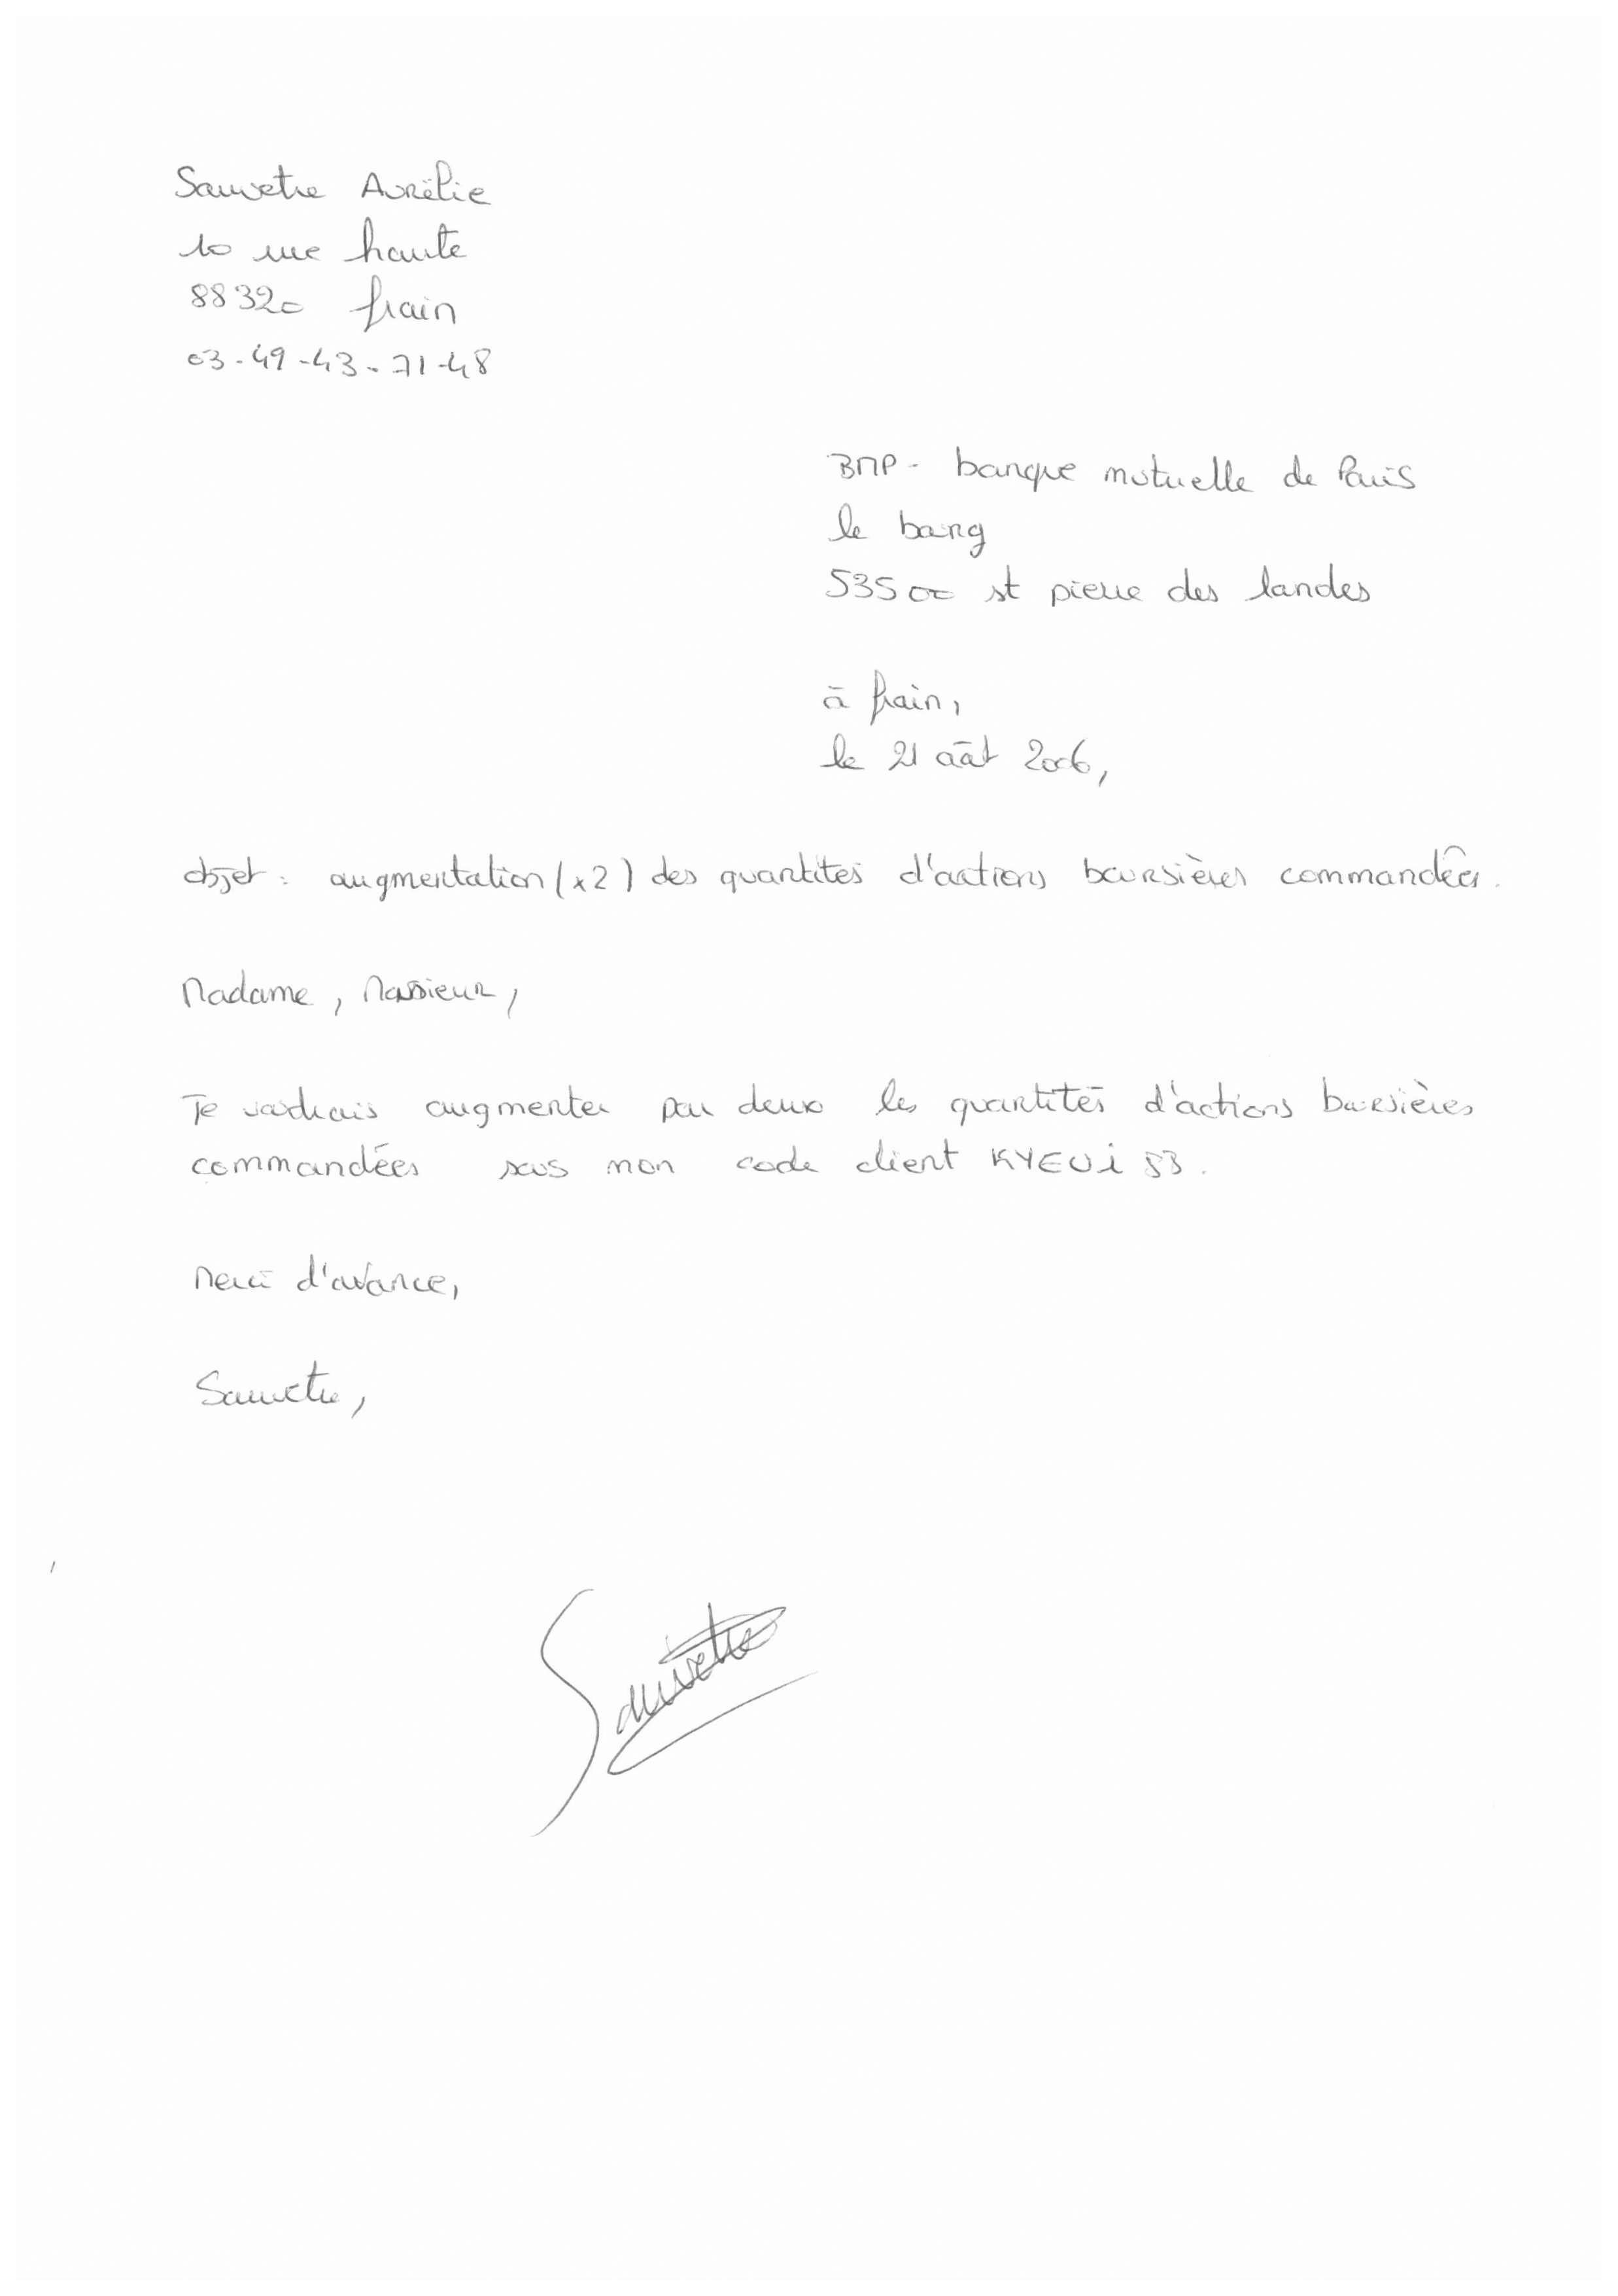 Sauvetre Aurélie
10 rue haute
88320 frain
03-49-43-71-48
BMP - banque mutuelle de Paris
le bourg
53500 st pierre des landes
à frain,
le 21 août 2006,
objet : augmentation (x2) des quantités d'actions boursières commandées.
Madame, Monsieur,
Je voudrais augmenter par deux les quantités d'actions boursières
commandées sous mon code client KYEUi 53.
Merci d'avance,
Sauvetre,
Sauvetre